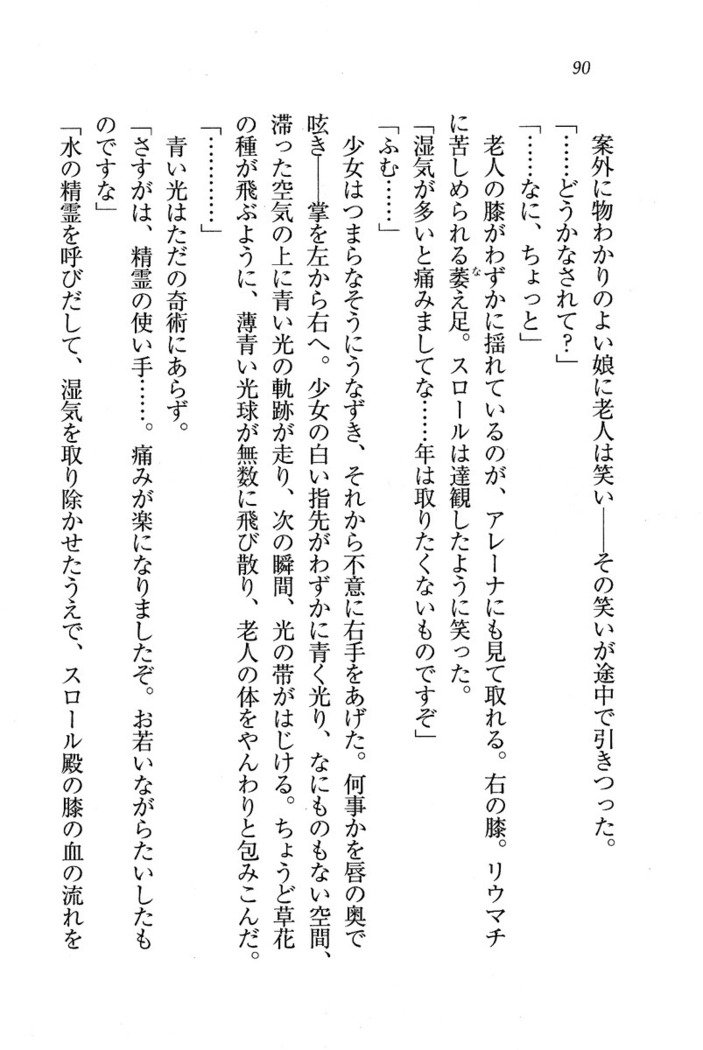 90
案外に物わかりのよい娘に老人は笑い――その笑いが途中で引きつった。
「……どうかなされて？」
「……なに、ちょっと」
老人の膝がわずかに揺れているのが、アレーナにも見て取れる。右の膝。リウマチ
に苦しめられる萎え足。スロールは達観したように笑った。
「湿気が多いと痛みましてな……年は取りたくないものですぞ」
「ふむ……」
少女はつまらなそうにうなずき、それから不意に右手をあげた。何事かを唇の奥で
呟き――掌を左から右へ。少女の白い指先がわずかに青く光り、なにものもない空間、
滞った空気の上に青い光の軌跡が走り、次の瞬間、光の帯がはじける。ちょうど草花
の種が飛ぶように、薄青い光球が無数に飛び散り、老人の体をやんわりと包みこんだ。
「…………」
青い光はただの奇術にあらず。
「さすがは、精霊の使い手……。痛みが楽になりましたぞ。お若いながらたいしたも
のですな」
「水の精霊を呼びだして、湿気を取り除かせたうえで、スロール殿の膝の血の流れを